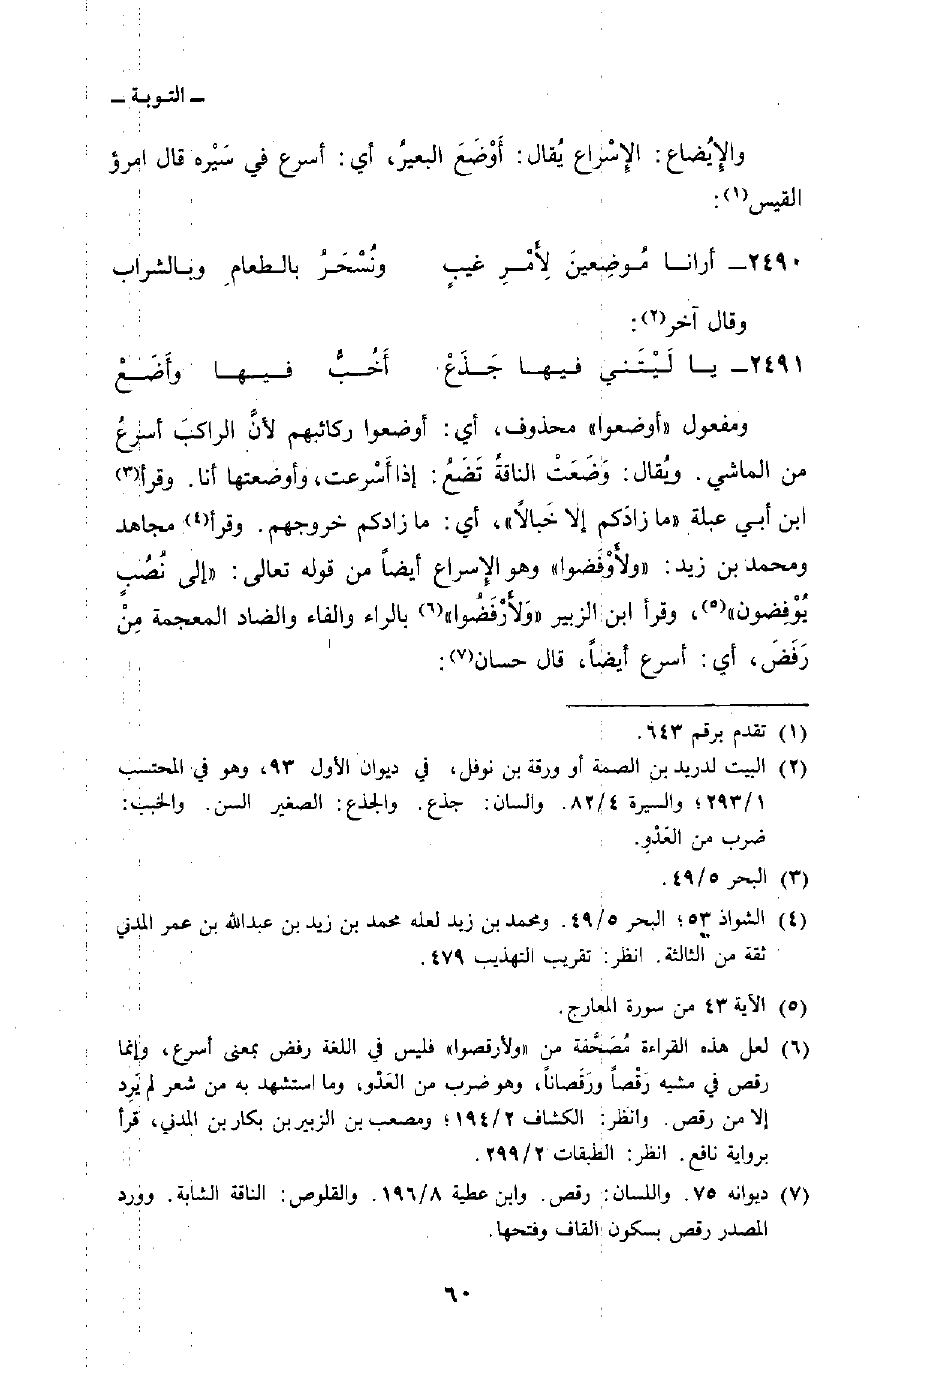 ـ التوبة ـ
والإِيْضاع: الإِسْراع يُقال: أَوْضَعَ البعيرُ، أي: أسرع في سَيْره قال امرؤ
القيس(١):
٢٤٩٠ـ أرانـا مُـوضِعينَ لِأَمْـرِ غيبٍ ونُسْحَرُ بالـطعامِ وبـالشراب
وقال آخر(٢):
٢٤٩١ـ يـا لَيْتَني فيهـا جَـذَعْ أَخُـبُّ فـيـهـا وأَضَـعْ
ومفعول «أوضعوا» محذوف، أي: أوضعوا ركائبهم لأنَّ الراكبَ أسرعُ
من الماشي. ويُقال: وَضَعَتْ الناقةُ تَضَعُ: إذا أَسْرعت، وأوضعتها أنا. وقرأ(٣)
ابن أبي عبلة «ما زادَكم إلا خَبالاً»، أي: ما زادكم خروجهم. وقرأ(٤) مجاهد
ومحمد بن زيد: «ولأَوْفَضوا» وهو الإِسراع أيضاً من قوله تعالى: «إلى نُصُبٍ
يُوْفِضون»(٥)، وقرأ ابن الزبير «وَلأَرْفَضُوا»(٦) بالراء والفاء والضاد المعجمة مِنْ
رَفَضَ، أي: أسرع أيضاً، قال حسان(٧):
(١) تقدم برقم ٦٤٣.
(٢) البيت لدريد بن الصمة أو ورقة بن نوفل، في ديوان الأول ٩٣، وهو في المحتسب
٢٩٣/١؛ والسيرة ٨٢/٤. والسان: جذع. والجذع: الصغير السن. والخبب:
ضرب من العَدْوِ.
(٣) البحر ٤٩/٥.
(٤) الشواذ ٥٣؛ البحر ٤٩/٥. ومحمد بن زيد لعله محمد بن زيد بن عبدالله بن عمر المدني
ثقة من الثالثة. انظر: تقريب التهذيب ٤٧٩.
(٥) الآية ٤٣ من سورة المعارج.
(٦) لعل هذه القراءة مُصَحَّفة من «ولأرقصوا» فليس في اللغة رفض بمعنى أسرع، وإنما
رقص في مشيه رَقْصاً ورَقَصاناً، وهو ضرب من العَدْو، وما استشهد به من شعر لم يَرِد
إلا من رقص. وانظر: الكشاف ١٩٤/٢؛ ومصعب بن الزبير بن بكار بن المدني، قرأ
برواية نافع. انظر: الطبقات ٢٩٩/٢.
(٧) ديوانه ٧٥. واللسان: رقص. وابن عطية ١٩٦/٨. والقلوص: الناقة الشابة. وورد
المصدر رقص بسكون القاف وفتحها.
٦٠